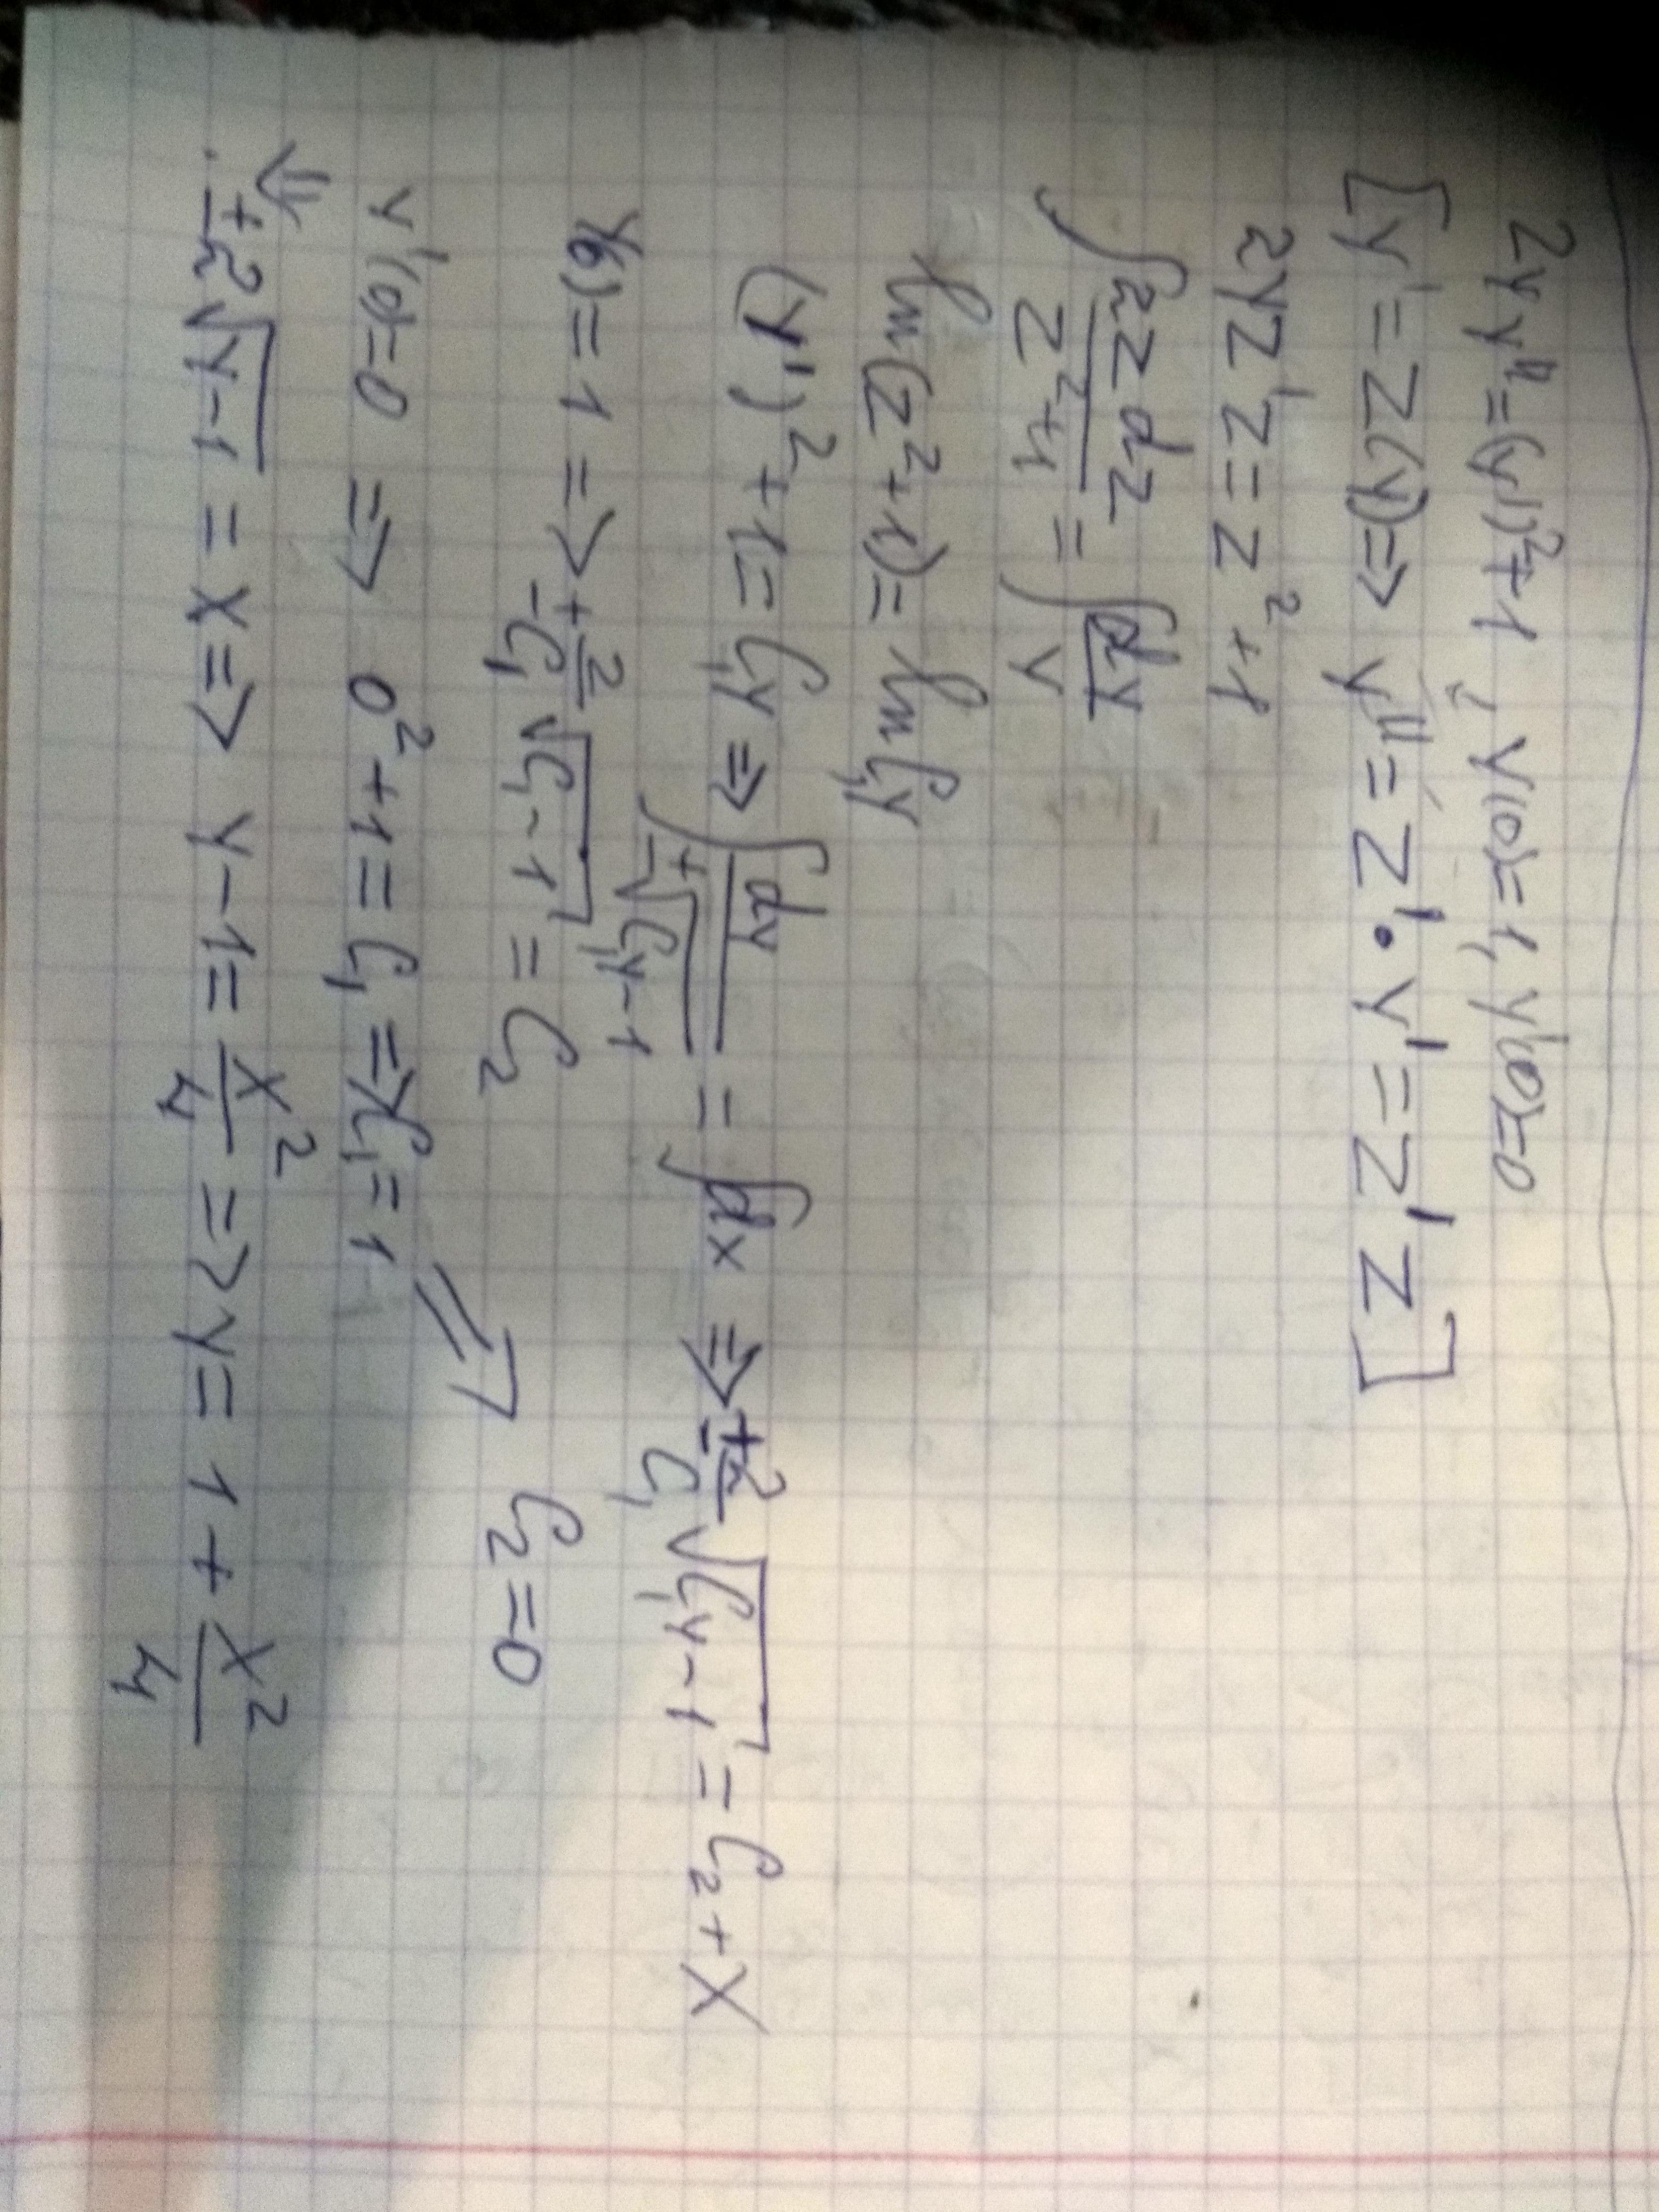 2yy'' = (y')² + 1, y(0) = 1, y'(0) = 0
[y' = z(y) => y'' = z'·y' = z'z]
2yz'z = z² + 1
∫ 2z dz / z² + 1 = ∫ dy / y
ln(z² + 1) = ln C₁y
(y')² + 1 = C₁y => ∫ dy / ±√(C₁y - 1) = ∫ dx => ± 2/C₁ √(C₁y - 1) = C₂ + x
y(0) = 1 => ± 2/C₁ √(C₁ - 1) = C₂
C₂ = 0
y'(0) = 0 => 0² + 1 = C₁ => C₁ = 1
± 2√(y - 1) = x => y - 1 = x²/4 => y = 1 + x²/4